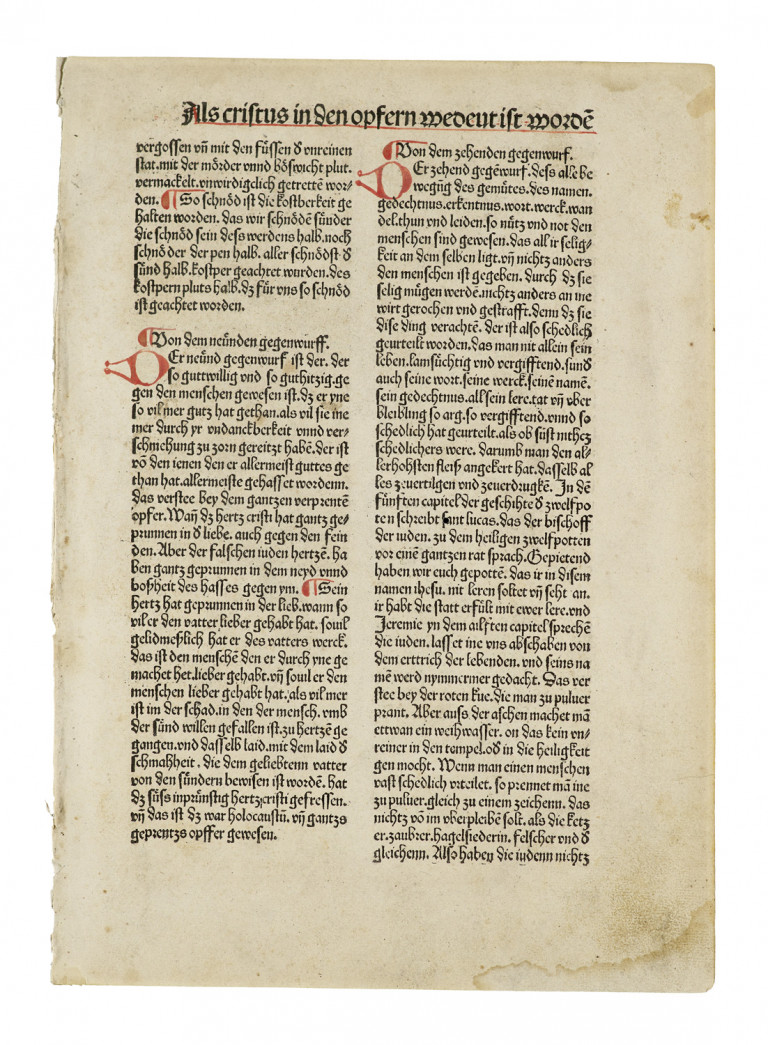 Als cristus in den opfern wedeut ist wordē
vergossen vñ mit den füssen d vnreinen
stat.mit der mörder vnnd böswicht plut.
vermackelt.vnwirdigclich getrettē wor-
den. So schnöd ist die kostberkeit ge
halten worden. das wir schnödē sünder
die schnöd sein dess werdens halb.noch
schnöder der pen halb. aller schnödst d
sünd halb.kostper geachtet wurden.des
kostpern pluts halb.dz für vns so schnöd
ist geachtet worden.
Von dem neünden gegenwurff.
DEr neünd gegenwurf ist der. der
so guttwillig vnd so guthitzig.ge
gen den menschen gewesen ist.dz er yne
so vil mer gutz hat gethan.als vil sie ine
mer durch yr vndanckberkeit vnnd ver-
schmehung zu zorn gereitzt habē.der ist
vō den ienen den er allermeist guttes ge
than hat.allermeiste gehasset wordenn.
das verstee bey dem gantzen verprentē
opfer.Wañ dz hertz cristi hat gantz ge-
prunnen in d liebe. auch gegen den fein
den. Aber der falschen iuden hertzē. ha
ben gantz geprunnen in dem neyd vnnd
boßheit des hasses gegen ym. Sein
hertz hat geprunnen in der lieb.wann so
vil er den vatter lieber gehabt hat. souil
gelidmeßlich hat er des vatters werck.
das ist den menschē den er durch yne ge
machet het.lieber gehabt.vñ souil er den
menschen lieber gehabt hat.als vil mer
ist im der schad.in den der mensch. vmb
der sünd willen gefallen ist.zu hertzē ge
gangen.vnd dasselb laid.mit dem laid d
schmahheit. die dem geliebtenn vatter
von den sündern bewisen ist wordē. hat
dz süss inprünstig hertz cristi gefressen.
vñ das ist dz war holocaustū. vñ gantzs
geprentzs opffer gewesen.
Von dem zehenden gegenwurf.
DEr zehend gegēwurf.dess alle be
wegūg des gemütes.des namen.
gedechtnus.erkentnus.wort.werck.wan
del.thun vnd leiden.so nütz vnd not den
menschen sind gewesen.das all ir selig-
keit an dem selben ligt.vñ nichtz anders
den menschen ist gegeben. durch dz sie
selig mügen werdē.nichtz anders an ine
wirt gerochen vnd gestrafft.denn dz sie
dise ding verachtē. der ist also schedlich
geurteilt worden.das man nit allein sein
leben.lamsüchtig vnd vergifftend.sund
auch seine wort.seine werck.seinē namē.
sein gedechtnus.all sein lere.tat vñ vber
bleibling so arg.so vergifftend.vnnd so
schedlich hat geurteilt.als ob süst nithcz
schedlichers were. darumb man den al-
lerhohsten fleiß angekert hat.dasselb al
les zeuertilgen vnd zeuerdrugkē. In dē
fünften capitel der geschihte d zwelfpo
ten schreibt sant lucas.das der bischoff
der iuden. zu dem heiligen zwelfpotten
vor einē gantzen rat sprach.Gepietend
haben wir euch gepottē. das ir in disem
namen ihesu. nit leren soltet vñ seht an.
ir habt die statt erfült mit ewer lere.vnd
Jeremie yn dem ailften capitel sprechē
die iuden. lasset ine vns abschaben von
dem erttrich der lebenden. vnd seins na
mē werd nymmermer gedacht. Das ver
stee bey der roten kue.die man zu puluer
prant. Aber auss der aschen machet mā
ettwan ein weihwasser. on das kein vn-
reiner in den tempel.od in die heiligkeit
gen mocht. Wenn man einen menschen
vast schedlich vrteilet. so prennet mā ine
zu puluer.gleich zu einem zeichenn. das
nichtz vō im vberpleibē solt. als die ketz
er.zaubrer.hagelsiederin. felscher vnd d
gleichenn. Also haben die iudenn nichtz